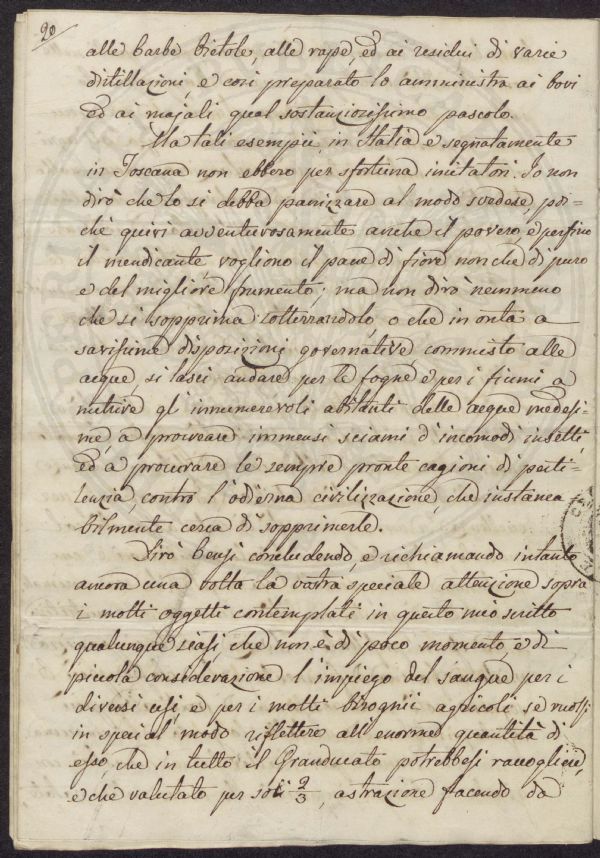 20
alle barbe bietole, alle rape, ed ai residui di varie
distillazioni, e così preparato lo amministra ai bovi
ed ai majali qual sostanziosissimo pascolo.
Ma tali esempii, in Italia e segnatamente
in Toscana non ebbero per sfortuna imitatori. Io non
dirò che lo si debba panizzare al modo svedese, poi=
chè quivi avventurosamente anche il povero, e perfino
il mendicante, vogliono il pane di fiore non che di puro
e del migliore frumento; ma non dirò nemmeno
che si sopprima sotterrandolo, o che in onta a
savissime disposizioni governative commisto alle
acque, si lasci andare per le fogne e per i fiumi a
nutrire gli innumerevoli abitanti delle acque medesi=
me, a procreare immensi sciami d'incomodi insetti,
ed a procurare le sempre pronte cagioni di pesti=
lenzia, contro l'odierna civilizzazione, che instanca
bilmente cerca di sopprimerle.
Dirò bensì concludendo, e richiamando intanto
ancora una volta la vostra speciale attenzione sopra
i molti oggetti contemplati in questo mio scritto
qualunque siasi che non è di poco momento, e di
piccola considerazione l'impiego del sangue per i
diversi usi, e per i molti bisognii agricoli se vuolsi
in special modo riflettere all'enorme quantità di
esso, che in tutto il Granducato potrebbesi raccogliere,
e che valutato per soli 2/3, astrazione facendo da